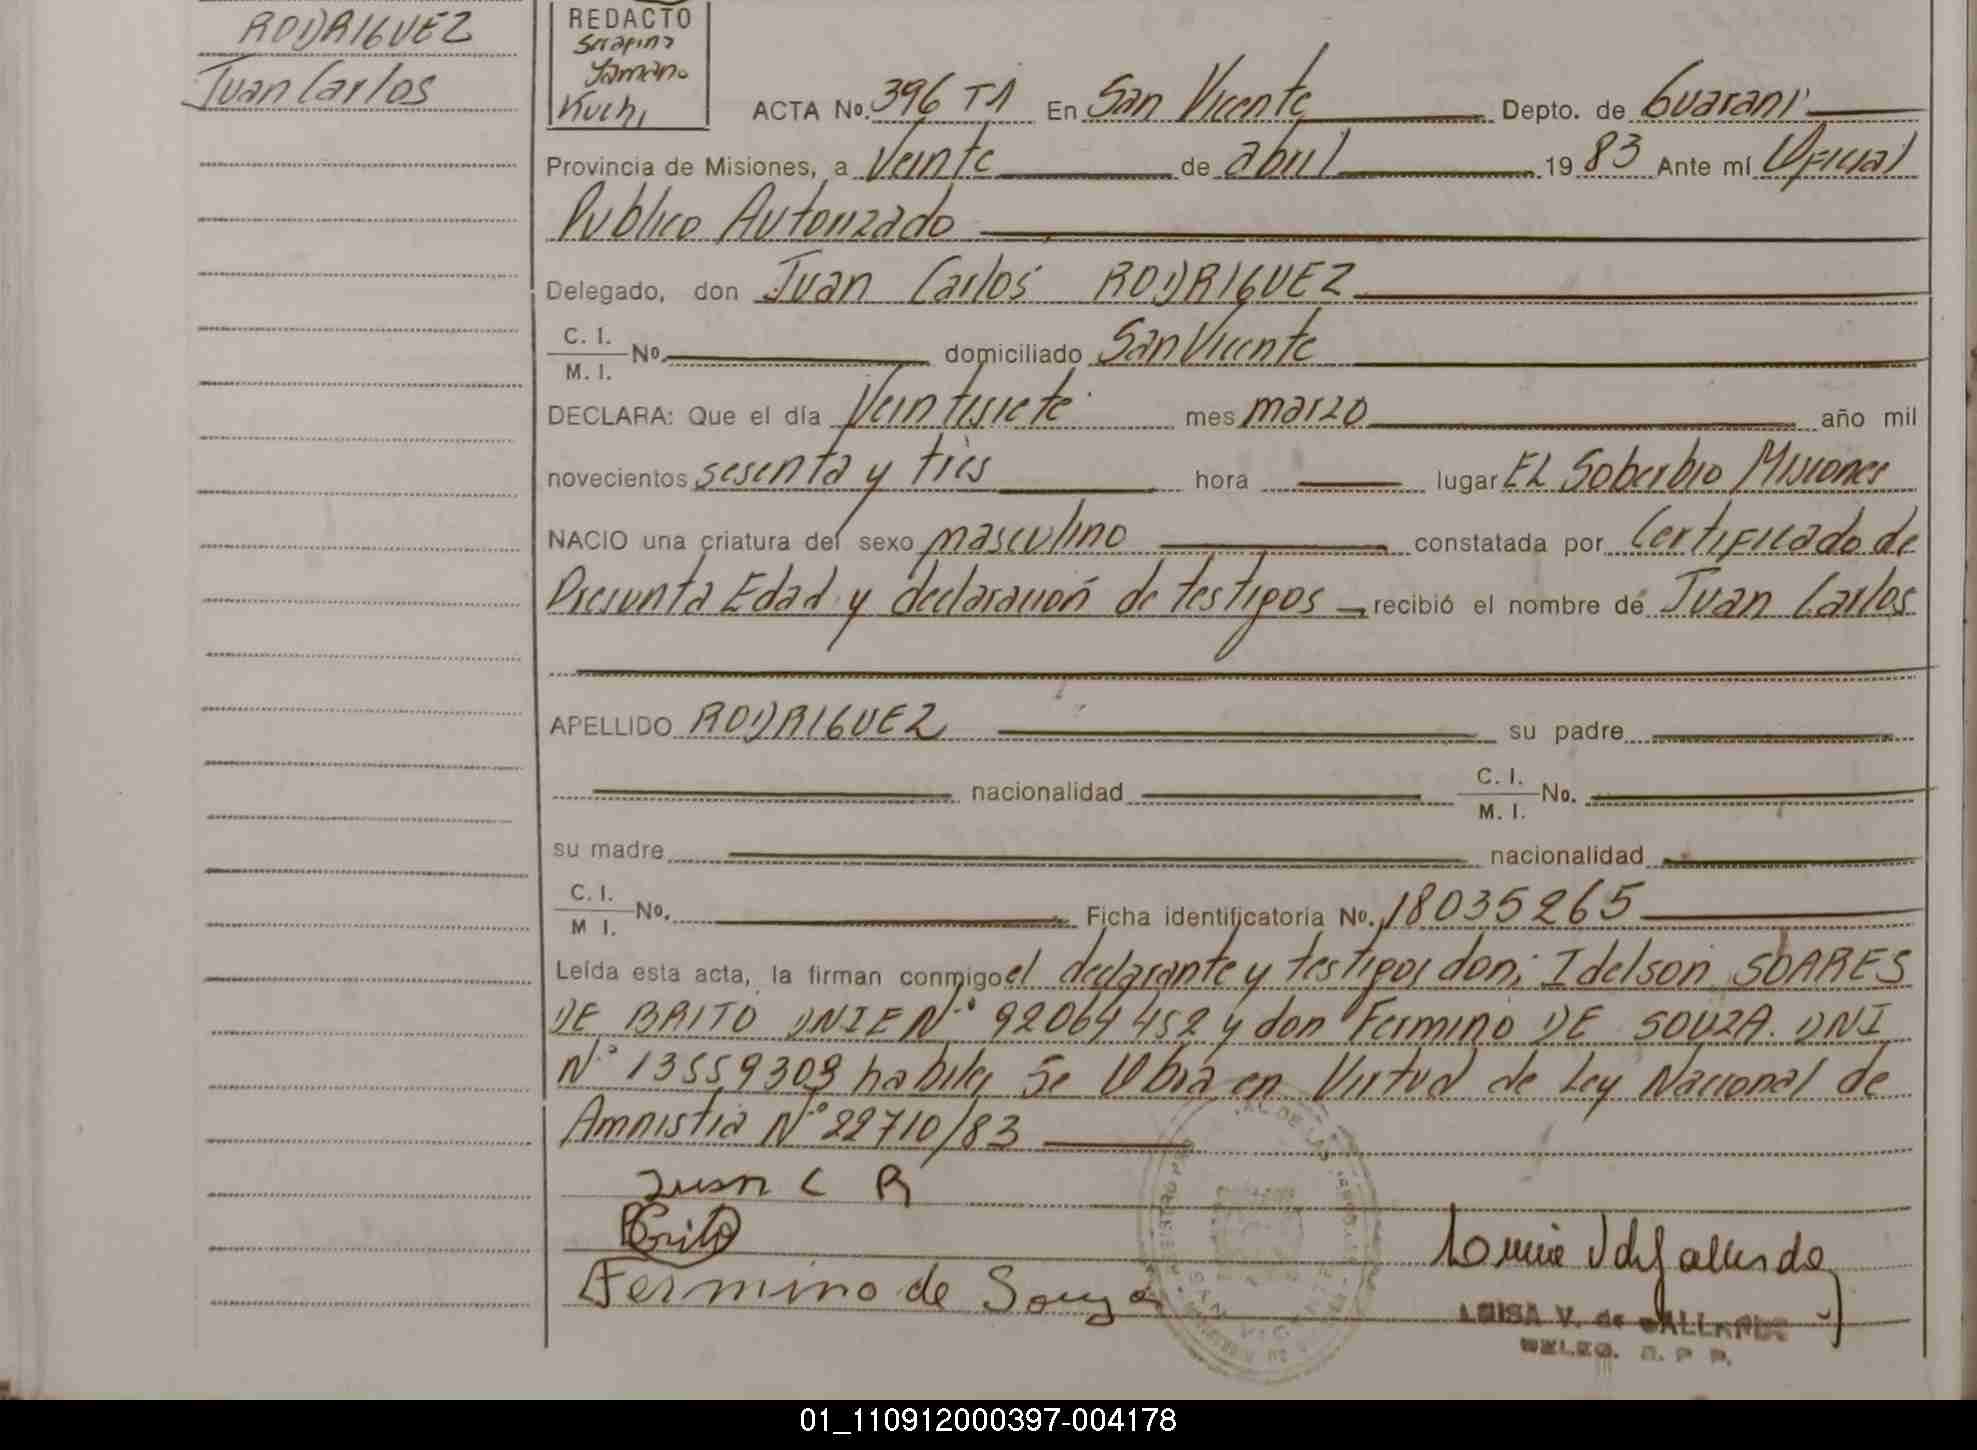 RODRIGUEZ
Juan Carlos
REDACTO
Serafina
Kuchi
ACTA No. 396 T1 En San Vicente Depto. de Guarani
Provincia de Misiones, a Veinte de abril 1983 Ante mí Oficial
Publico Autorizado
Delegado, don Juan Carlos RODRIGUEZ
C. I.
M. I. No. domiciliado San Vicente
DECLARA: Que el día Veintisiete mes marzo año mil
novecientos sesenta y tres hora lugar EL Soberbio Misiones
NACIO una criatura del sexo masculino constatada por Certificado de
Presunta Edad y declaración de testigos recibió el nombre de Juan Carlos
APELLIDO RODRIGUEZ su padre
nacionalidad C. I.
M. I. No.
su madre nacionalidad
C. I.
M I. No. Ficha identificatoria No. 18035265
Leída esta acta, la firman conmigo el declarante y testigos don; Idelson SOARES
DE BRITO DNIE Nº 92064452 y don Fermino DE SOUZA. DNI
Nº 13559309 habiles Se Obra en Virtud de Ley Nacional de
Amnistia Nº 22710/83
Juan C R
Brito
Fermino de Souza
LUISA V. de GALLARDO
DELEG. R. P. P.
SAN VICENTE
01_110912000397-004178